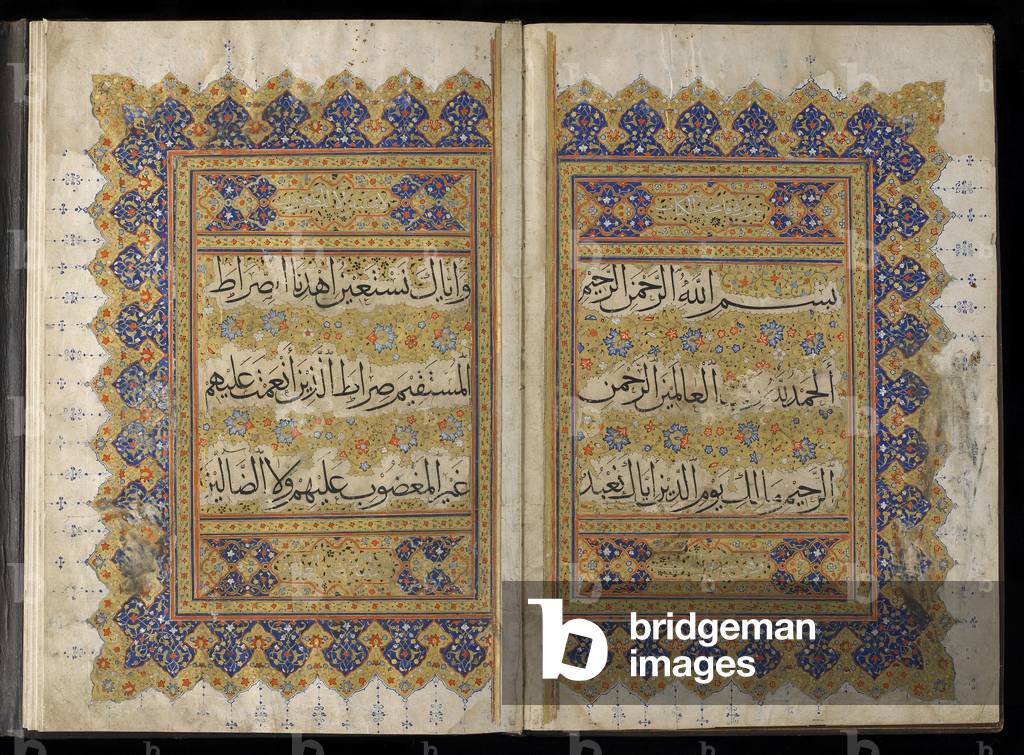 بسم الله الرحمن الرحيم
ألحمد لله رب العالمين الرحمن
الرحيم مالك يوم الدين إياك نعبد
وإياك نستعين اهدنا الصراط
المستقيم صراط الذين أنعمت عليهم
غير المغضوب عليهم ولا الضالين
bridgeman
images